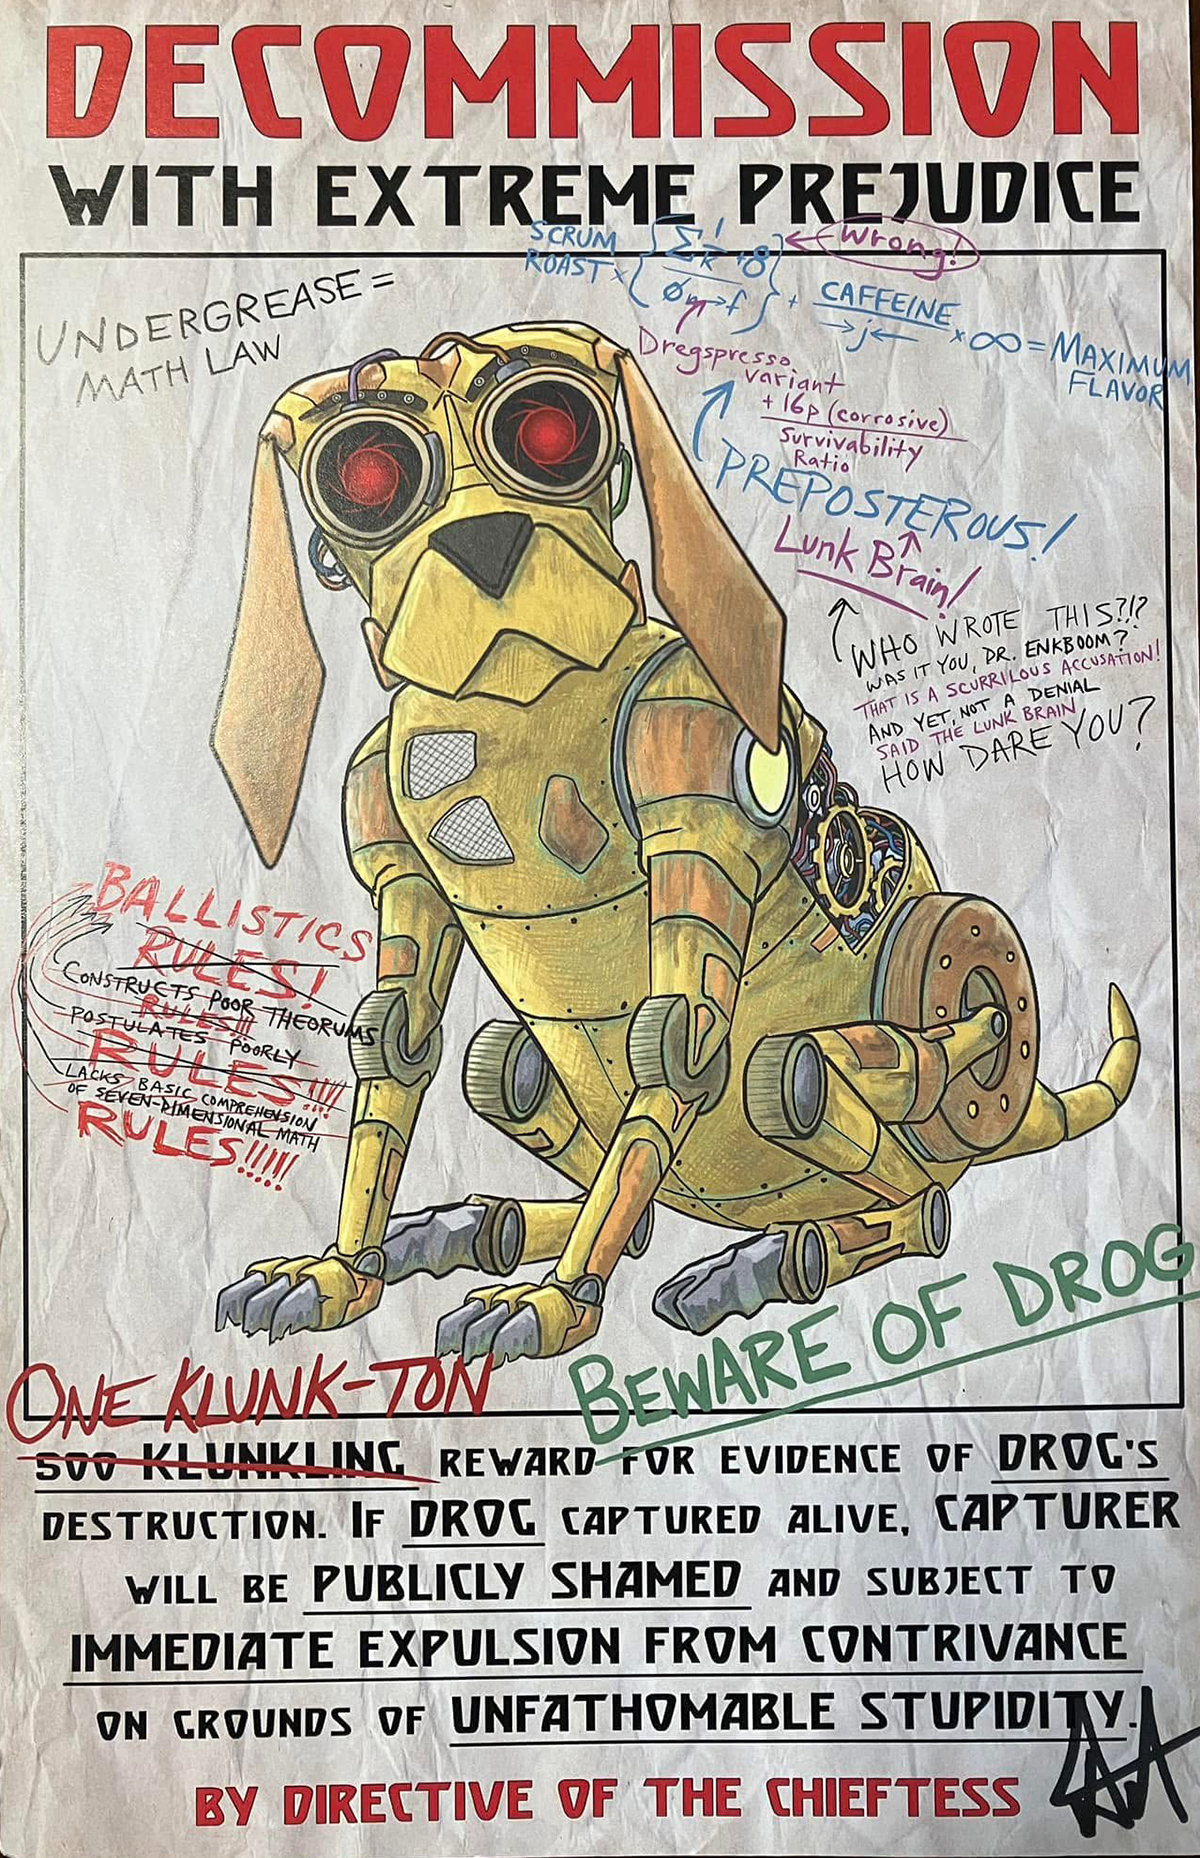 DECOMMISSION
WITH EXTREME PREJUDICE
UNDERGREASE =
MATH LAW
SCRUM
ROAST × { Σ 1/k +8 / Øn→f } + CAFFEINE / →j← × ∞ = MAXIMUM
FLAVOR
Wrong!
Dregspresso
variant
+ 16p (corrosive)
Survivability
Ratio
PREPOSTEROUS!
Lunk Brain!
WHO WROTE THIS?!?
WAS IT YOU, DR. ENKBOOM?
THAT IS A SCURRILOUS ACCUSATION!
AND YET, NOT A DENIAL
SAID THE LUNK BRAIN
HOW DARE YOU?
BALLISTICS
RULES!
CONSTRUCTS POOR THEORUMS
RULES!!!
POSTULATES POORLY
RULES!!!!
LACKS BASIC COMPREHENSION
OF SEVEN-DIMENSIONAL MATH
RULES!!!!!
BEWARE OF DROG
ONE KLUNK-TON
500 KLUNKLING REWARD FOR EVIDENCE OF DROG'S
DESTRUCTION. IF DROG CAPTURED ALIVE, CAPTURER
WILL BE PUBLICLY SHAMED AND SUBJECT TO
IMMEDIATE EXPULSION FROM CONTRIVANCE
ON GROUNDS OF UNFATHOMABLE STUPIDITY.
BY DIRECTIVE OF THE CHIEFTESS